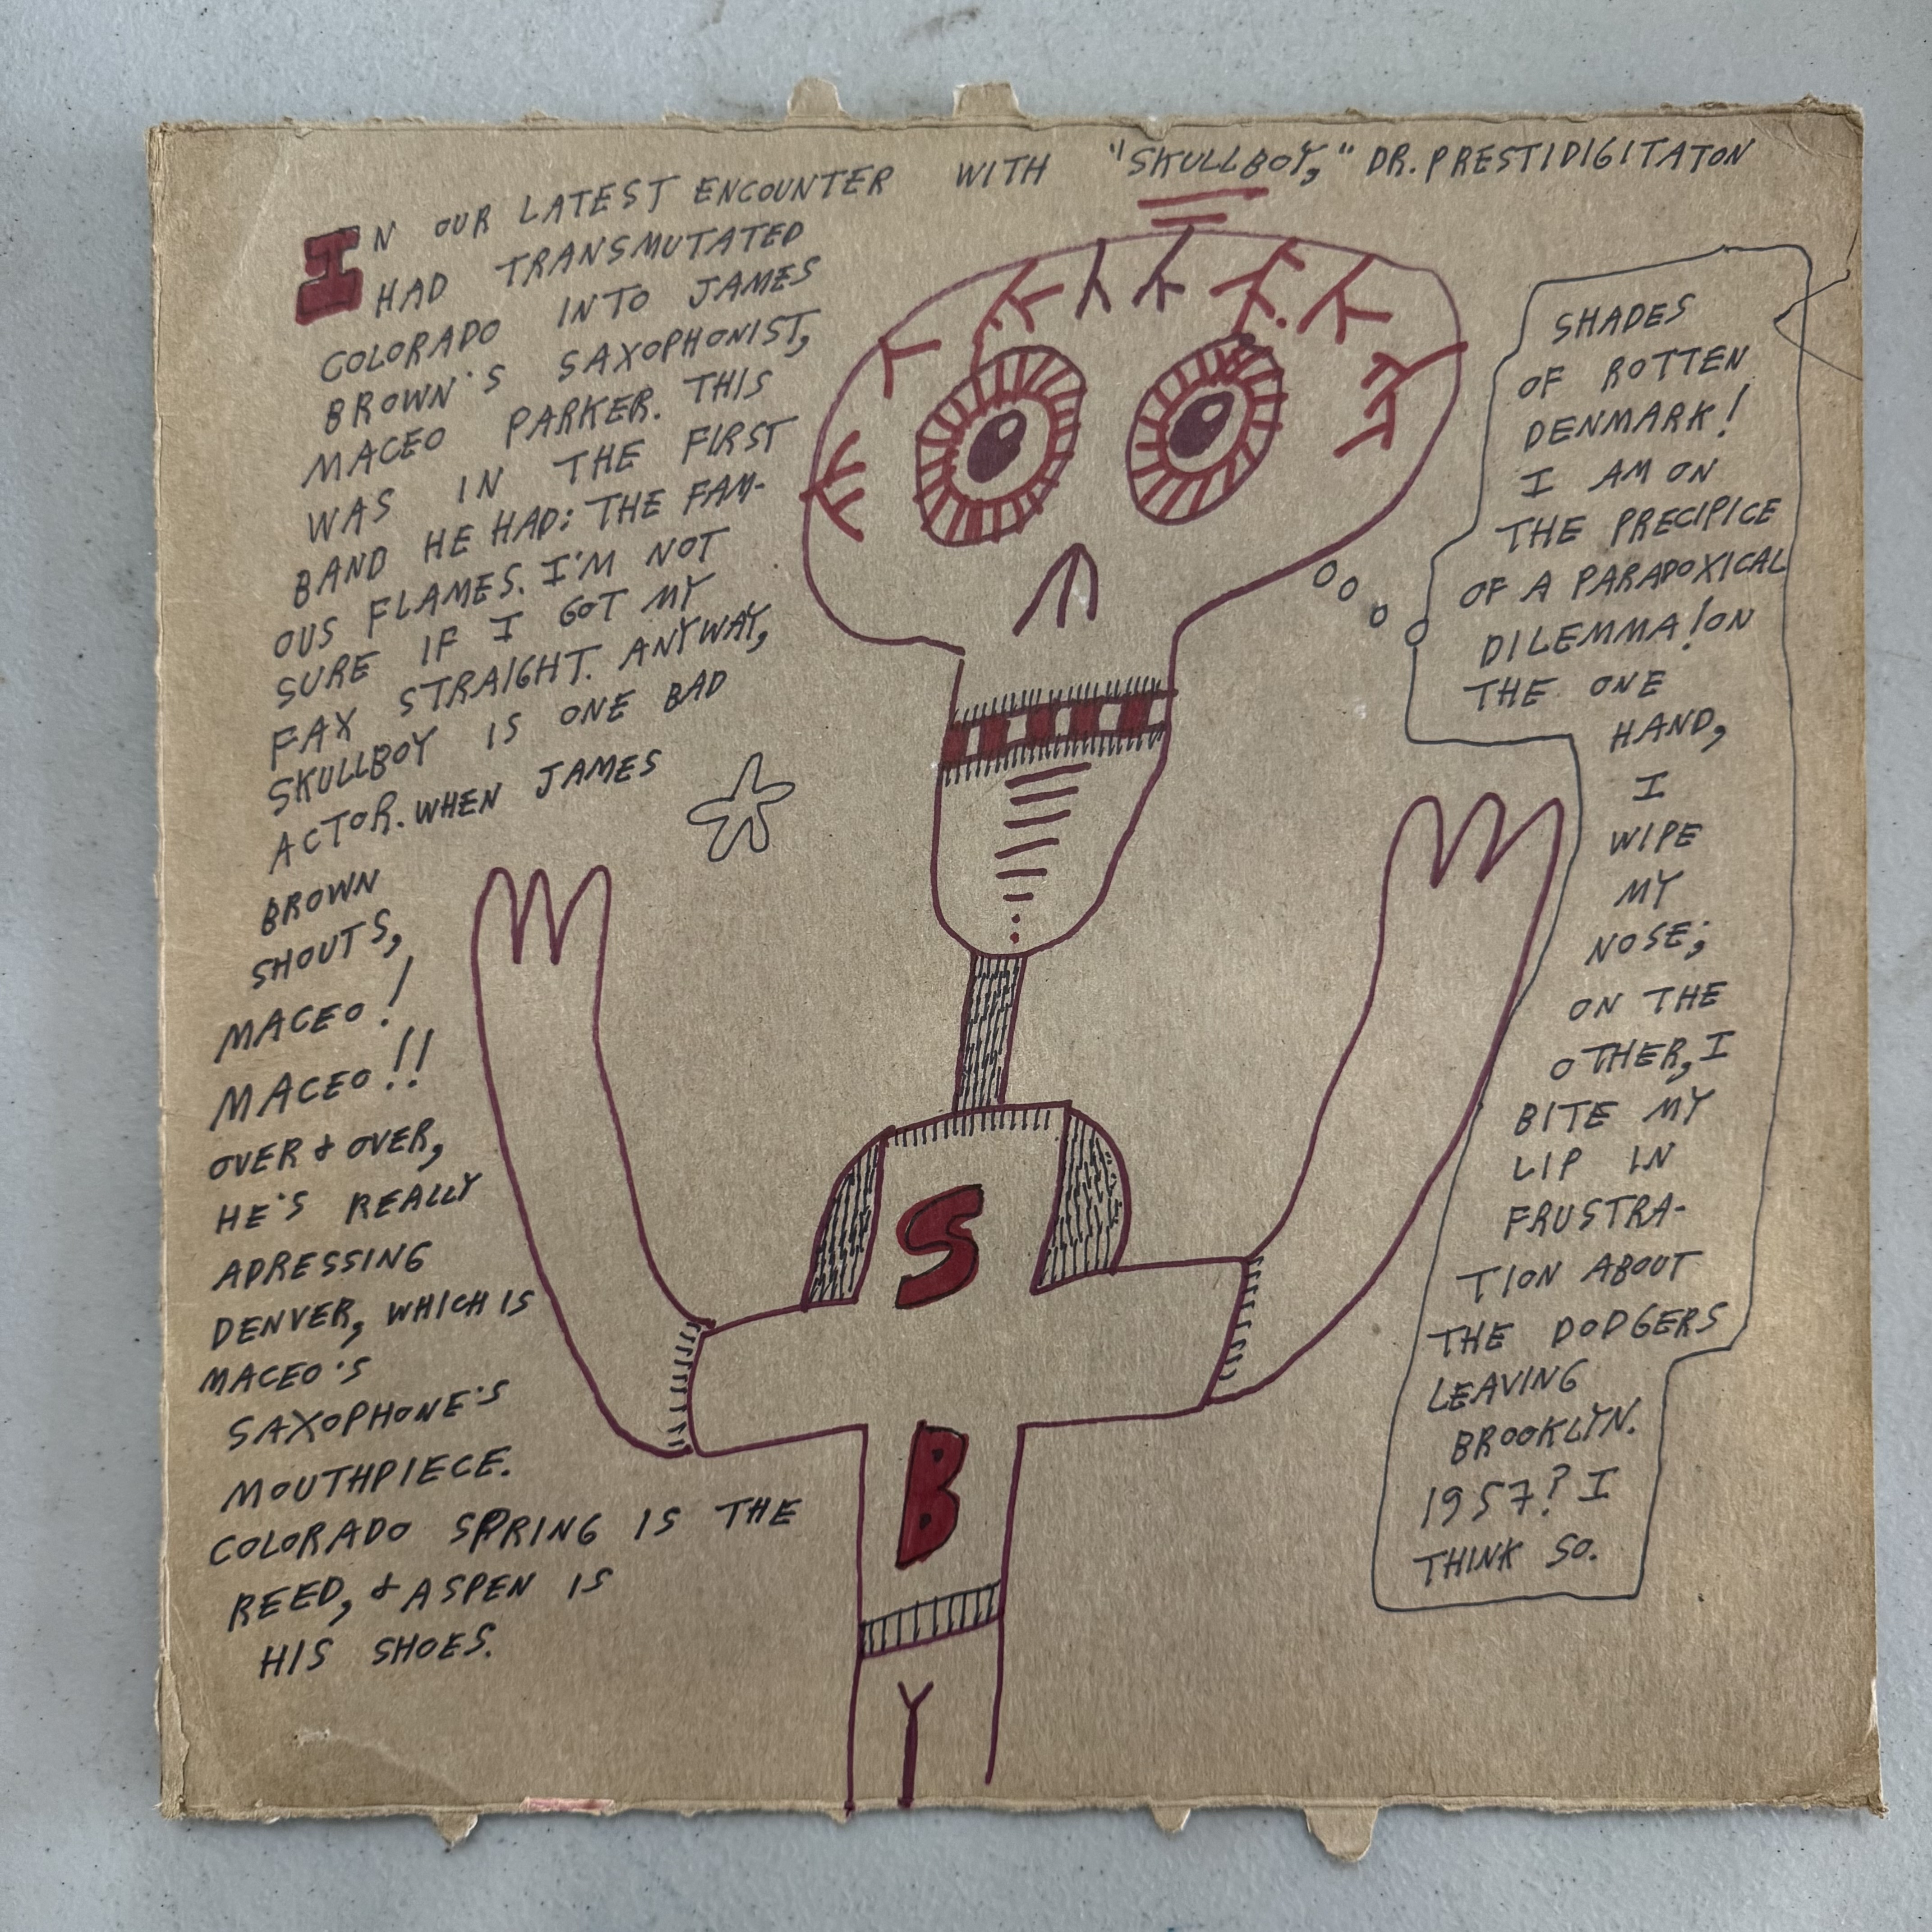 IN OUR LATEST ENCOUNTER WITH "SKULLBOY," DR. PRESTIDIGITATON
HAD TRANSMUTATED
COLORADO INTO JAMES
BROWN'S SAXOPHONIST,
MACEO PARKER. THIS
WAS IN THE FIRST
BAND HE HAD: THE FAM-
OUS FLAMES. I'M NOT
SURE IF I GOT MY
FAX STRAIGHT. ANYWAY,
SKULLBOY IS ONE BAD
ACTOR. WHEN JAMES
BROWN
SHOUTS,
MACEO!
MACEO!!
OVER & OVER,
HE'S REALLY
ADRESSING
DENVER, WHICH IS
MACEO'S
SAXOPHONE'S
MOUTHPIECE.
COLORADO SPRING IS THE
REED, & ASPEN IS
HIS SHOES.
S
B
Y
SHADES
OF ROTTEN
DENMARK!
I AM ON
THE PRECIPICE
OF A PARADOXICAL
DILEMMA! ON
THE ONE
HAND,
I
WIPE
MY
NOSE;
ON THE
OTHER, I
BITE MY
LIP IN
FRUSTRA-
TION ABOUT
THE DODGERS
LEAVING
BROOKLYN.
1957? I
THINK SO.